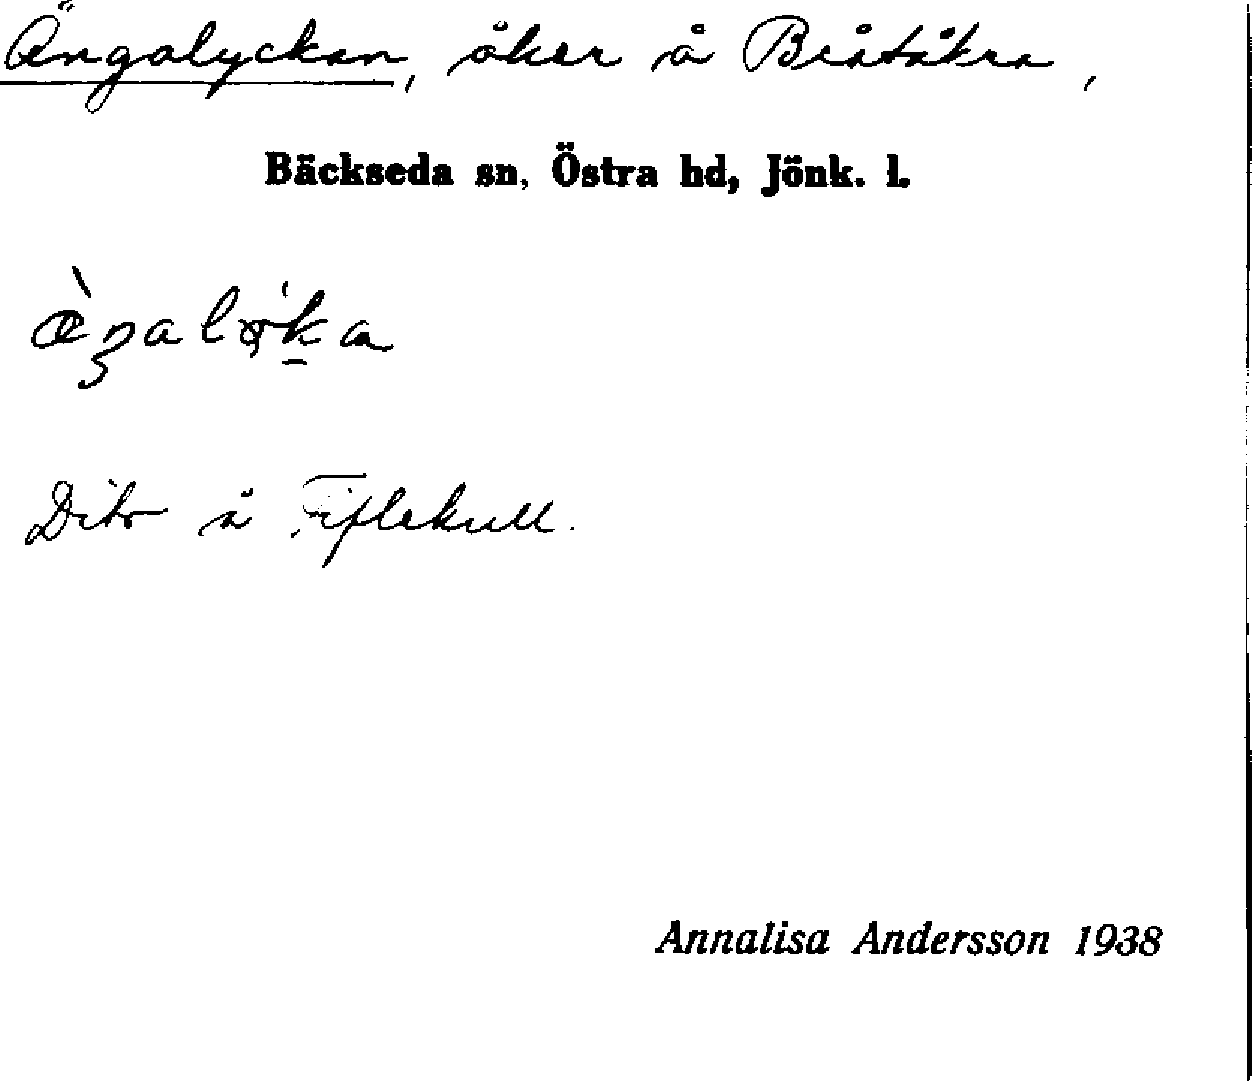 Ängalyckan, åker å Bråtåkra,
Bäckseda sn, Östra hd, Jönk. l.
Dito å Fiflekull.
Annalisa Andersson 1938